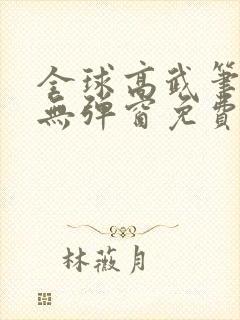 全球高武筆
無彈窗免費
林薇月